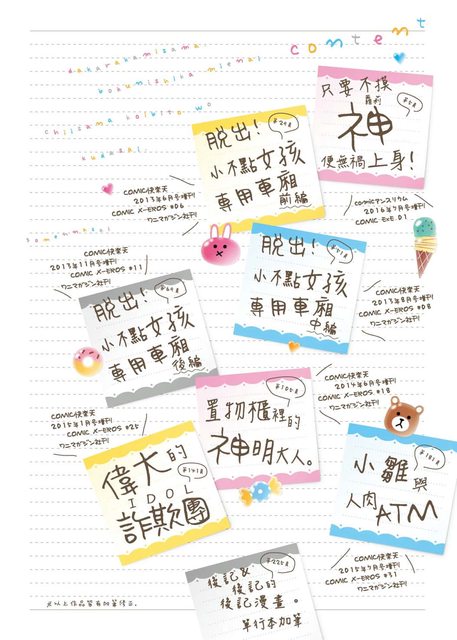 content
dakarakamisama
bokumishika mienai
chiisana koibito wo
kudasai.
只要不摸
蘿莉
神
便無禍上身！
第5頁
comicマンスリウム
2016年7月号増刊
COMIC EXE 01
ワニマガジン社刊
脱出！
第29頁
小不點女孩
專用車廂
前編
COMIC快楽天
2013年6月号増刊
COMIC X-EROS #06
ワニマガジン社刊
脱出！
小不點女孩
專用車廂
中編
COMIC快楽天
2013年8月号増刊
COMIC X-EROS #08
ワニマガジン社刊
somennhasi
COMIC快楽天
2013年11月号増刊
COMIC X-EROS #11
ワニマガジン社刊
脱出！
小不點女孩
專用車廂
後編
置物櫃裡的
神明大人。
COMIC快楽天
2014年6月号増刊
COMIC X-EROS #18
ワニマガジン社刊
COMIC快楽天
2015年1月号増刊
COMIC X-EROS #25
ワニマガジン社刊
偉大的
IDOL
詐欺團
小雛與
人肉ATM
COMIC快楽天
2015年7月号増刊
COMIC X-EROS #31
ワニマガジン社刊
第225頁
後記&
後記的
後記漫畫。
單行本加筆
※以上作品皆有加筆修正。